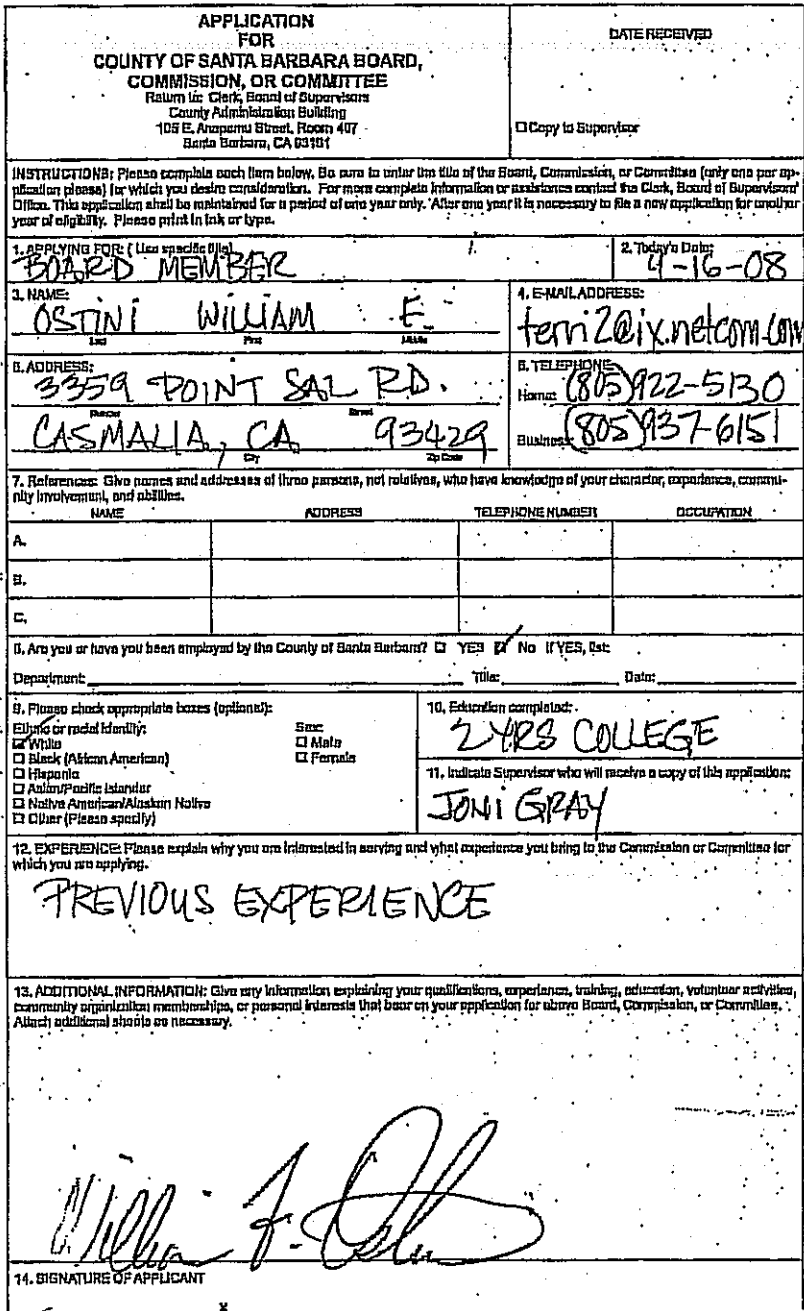 APPLICATION
FOR
COUNTY OF SANTA BARBARA BOARD,
COMMISSION, OR COMMITTEE
Return to: Clerk, Board of Supervisors
County Administration Building
105 E. Anapamu Street, Room 407
Santa Barbara, CA 93101
DATE RECEIVED
☐ Copy to Supervisor
INSTRUCTIONS: Please complete each item below. Be sure to enter the title of the Board, Commission, or Committee (only one per ap-
plication please) for which you desire consideration. For more complete information or assistance contact the Clerk, Board of Supervisors'
Office. This application shall be maintained for a period of one year only. After one year it is necessary to file a new application for another
year of eligibility. Please print in ink or type.
1. APPLYING FOR: (Use specific title)
BOARD MEMBER
2. Today's Date:
4-16-08
3. NAME:
OSTINI WILLIAM E.
Last First Middle
4. E-MAIL ADDRESS:
terri2@ix.netcom.com
5. ADDRESS:
3359 POINT SAL RD.
Number Street
CASMALIA, CA 93429
City Zip Code
6. TELEPHONE
Home: (805) 922-5130
Business: (805) 937-6151
7. References: Give names and addresses of three persons, not relatives, who have knowledge of your character, experience, commu-
nity involvement, and abilities.
NAME ADDRESS TELEPHONE NUMBER OCCUPATION
A.
B.
C.
8. Are you or have you been employed by the County of Santa Barbara? ☐ YES ☑ No If YES, list:
Department: Title: Date:
9. Please check appropriate boxes (optional):
Ethnic or racial identity: Sex:
☑ White ☐ Male
☐ Black (African American) ☐ Female
☐ Hispanic
☐ Asian/Pacific Islander
☐ Native American/Alaskan Native
☐ Other (Please specify)
10. Education completed:
2 YRS COLLEGE
11. Indicate Supervisor who will receive a copy of this application:
JONI GRAY
12. EXPERIENCE: Please explain why you are interested in serving and what experience you bring to the Commission or Committee for
which you are applying.
PREVIOUS EXPERIENCE
13. ADDITIONAL INFORMATION: Give any information explaining your qualifications, experience, training, education, volunteer activities,
community organization memberships, or personal interests that bear on your application for above Board, Commission, or Committee.
Attach additional sheets as necessary.
William
14. SIGNATURE OF APPLICANT
x